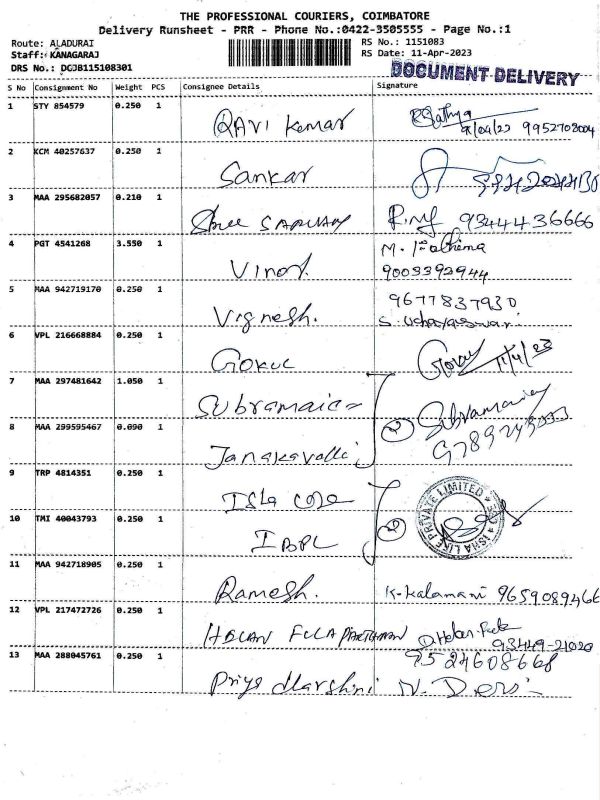 THE PROFESSIONAL COURIERS, COIMBATORE
Delivery Runsheet - PRR - Phone No.:0422-3505555 - Page No.:1
Route: ALADURAI RS No.: 1151083
Staff: KANAGARAJ RS Date: 11-Apr-2023
DRS No.: DCJB115108301 DOCUMENT DELIVERY
S No Consignment No Weight PCS Consignee Details Signature
1 STY 854579 0.250 1 RAVI Kumar 9952708004
2 KCM 40257637 0.250 1 Sankar
3 MAA 295682057 0.210 1 Shree 9344436666
4 PGT 4541268 3.550 1 Vinoth M. Fathima
9003392944
5 MAA 942719170 0.250 1 Vignesh. 9677837930
6 VPL 216668884 0.250 1 GOKUL Gokul 11/4/23
7 MAA 297481642 1.050 1 Subramaian 2
8 MAA 299595467 0.090 1 Janakavalli
9 TRP 4814351 0.250 1 ISHA LIFE PRIVATE LIMITED
10 TMI 40043793 0.250 1 2
11 MAA 942718905 0.250 1 Ramesh. K. Kalamani 9659089466
12 VPL 217472726 0.250 1 93449-21020
13 MAA 288045761 0.250 1 Priya Harshini 9524608668